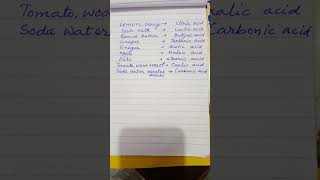 Lemon, Orange → Citric acid
Sour milk → Lactic acid
Rancid Butter → Butyric acid
Grapes → Tartaric acid
Vinegar → Acetic acid
Apple → Maleic acid
Fats → Stearic acid
Tomato, wood sorrel → Oxalic acid
Soda water, aerated drinks → Carbonic acid